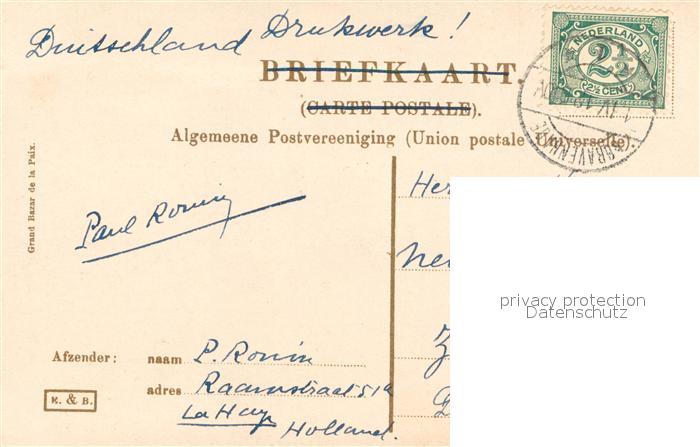 Duitschland Drukwerk!
NEDERLAND
2½
2½ CENT
BRIEFKAART.
(CARTE POSTALE).
'S GRAVENHAGE
Algemeene Postvereeniging (Union postale Universelle).
Grand Bazar de la Paix.
Paul Ronin
Her
privacy protection
Datenschutz
Afzender: naam P. Ronin
adres Raamstraat 51a
K. & B.
La Haye
Holland.